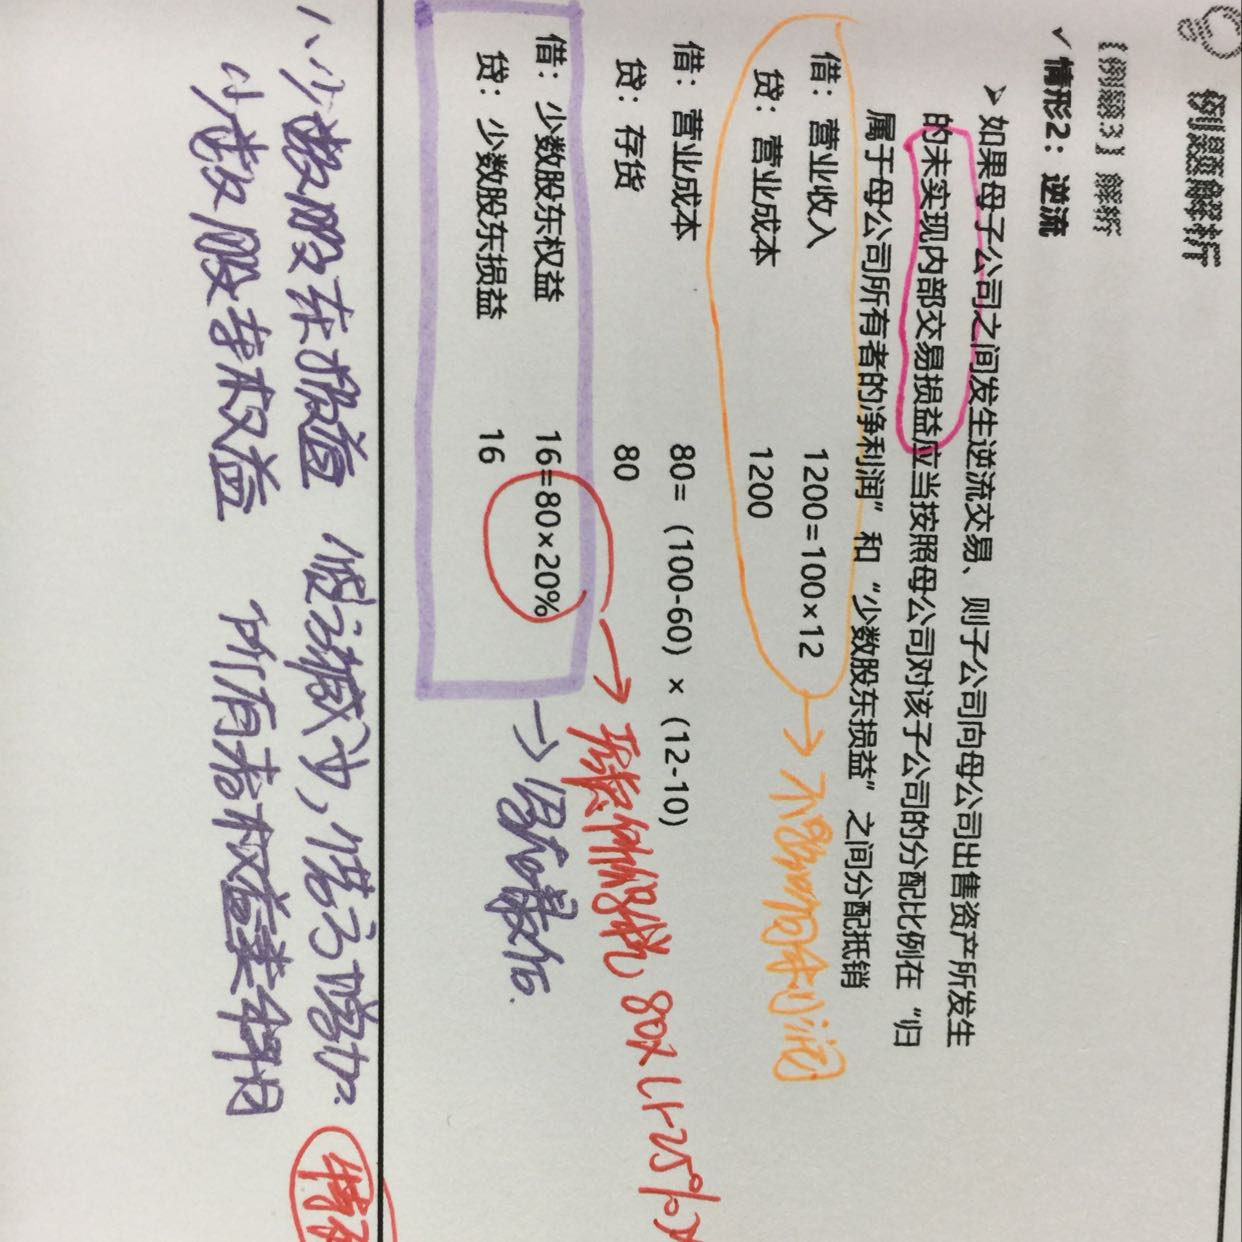 例题解析
【例题3】解析
✓ 情形2：逆流
➢ 如果母子公司之间发生逆流交易、则子公司向母公司出售资产所发生
的未实现内部交易损益应当按照母公司对该子公司的分配比例在“归
属于母公司所有者的净利润”和“少数股东损益”之间分配抵销
借：营业收入 1200=100×12
贷：营业成本 1200
→ 不影响净利润
借：营业成本 80=（100-60）×（12-10）
贷：存货 80
借：少数股东权益 16=80×20%
贷：少数股东损益 16
80×(1-25%)×
1、少数股东损益 借方减少，贷方增加.
少数股东权益 所有者权益类科目